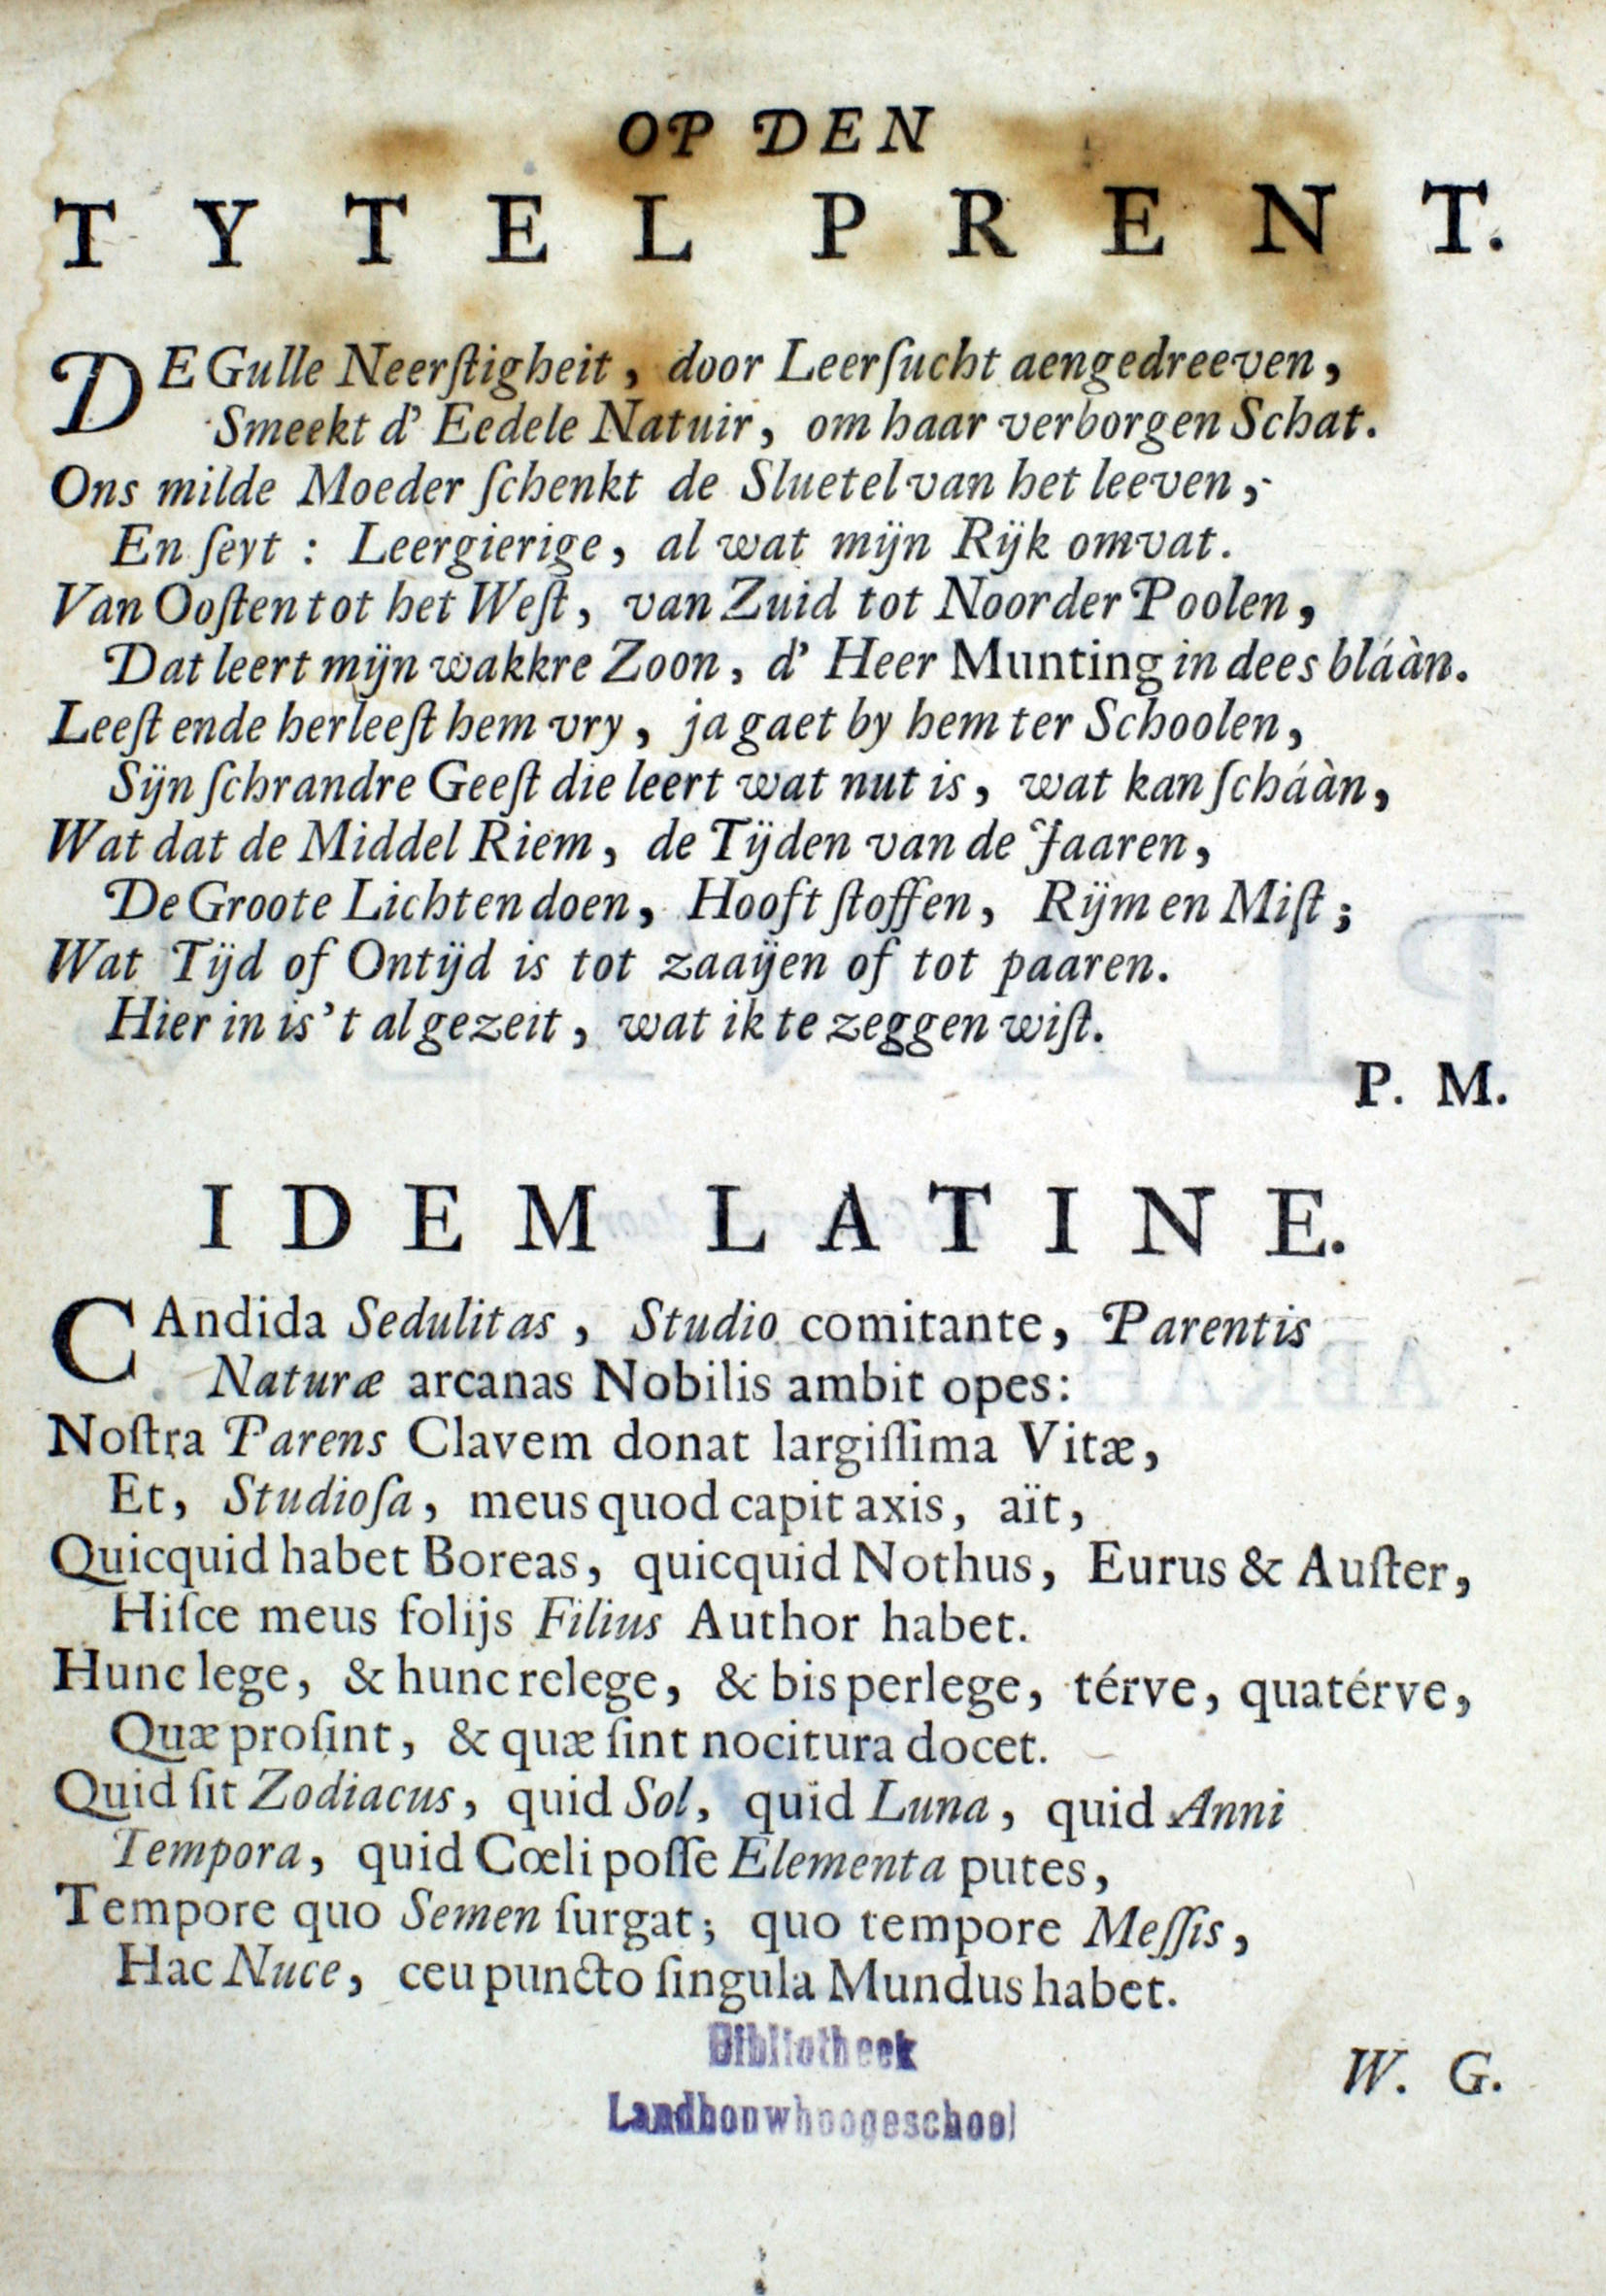 OP DEN
TYTEL PRENT.
DE Gulle Neerſtigheit, door Leerſucht aengedreeven,
Smeekt d' Eedele Natuir, om haar verborgen Schat.
Ons milde Moeder ſchenkt de Sluetel van het leeven,
En ſeyt : Leergierige, al wat mijn Rijk omvat.
Van Ooſten tot het Weſt, van Zuid tot Noorder Poolen,
Dat leert mijn wakkre Zoon, d' Heer Munting in dees bláàn.
Leeſt ende herleeſt hem vry, ja gaet by hem ter Schoolen,
Sijn ſchrandre Geeſt die leert wat nut is, wat kan ſcháàn,
Wat dat de Middel Riem, de Tijden van de Jaaren,
De Groote Lichten doen, Hooft ſtoffen, Rijm en Miſt;
Wat Tijd of Ontijd is tot zaaijen of tot paaren.
Hier in is 't al gezeit, wat ik te zeggen wiſt.
P. M.
IDEM LATINE.
CAndida Sedulitas, Studio comitante, Parentis
Naturæ arcanas Nobilis ambit opes:
Noſtra Parens Clavem donat largiſſima Vitæ,
Et, Studioſa, meus quod capit axis, aït,
Quicquid habet Boreas, quicquid Nothus, Eurus & Auſter,
Hiſce meus folijs Filius Author habet.
Hunc lege, & hunc relege, & bis perlege, térve, quatérve,
Quæ proſint, & quæ ſint nocitura docet.
Quid ſit Zodiacus, quid Sol, quid Luna, quid Anni
Tempora, quid Cœli poſſe Elementa putes,
Tempore quo Semen ſurgat; quo tempore Meſſis,
Hac Nuce, ceu puncto ſingula Mundus habet.
W. G.
Bibliotheek
Landbouwhoogeschool